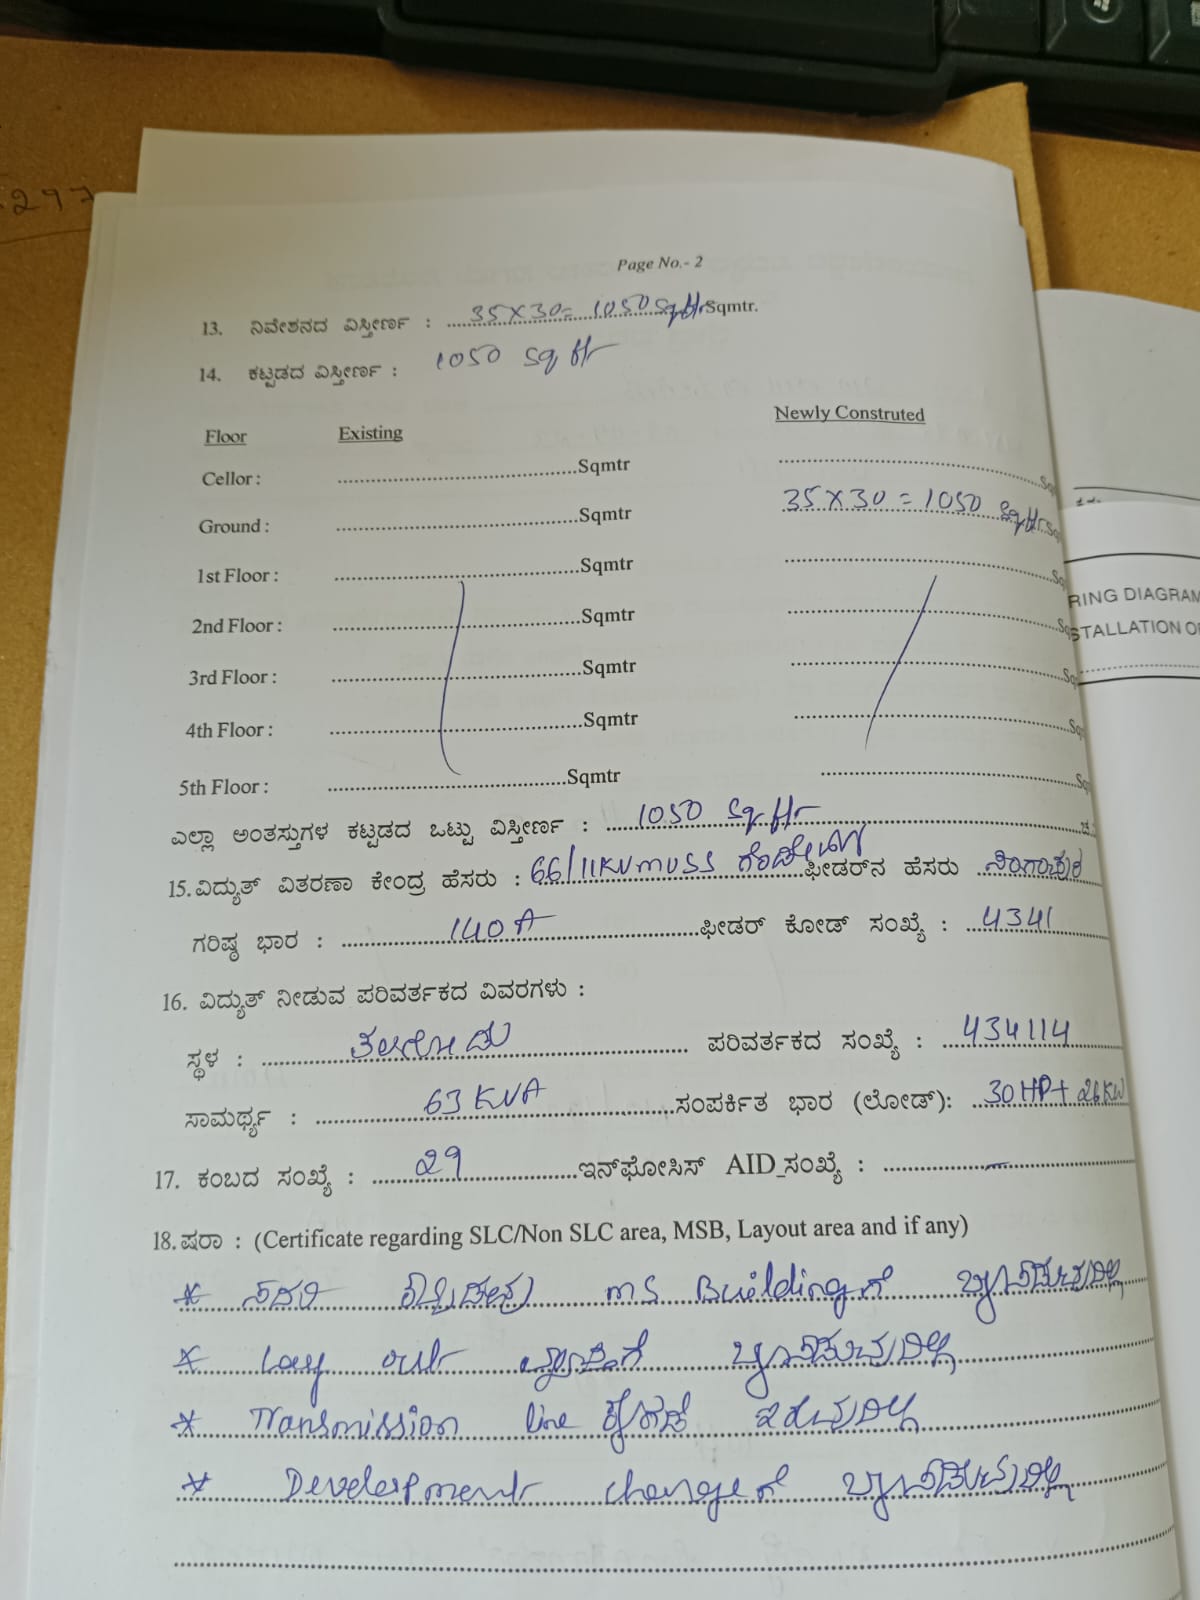 297
Page No.- 2
13. ನಿವೇಶನದ ವಿಸ್ತೀರ್ಣ : 35X30= 1050 Sq ftr Sqmtr.
14. ಕಟ್ಟಡದ ವಿಸ್ತೀರ್ಣ : 1050 Sq ftr
Floor Existing Newly Construted
Cellor : Sqmtr
Ground : Sqmtr 35X30 = 1050 Sq ftr
1st Floor : Sqmtr
2nd Floor : Sqmtr
3rd Floor : Sqmtr
4th Floor : Sqmtr
5th Floor : Sqmtr
ಎಲ್ಲಾ ಅಂತಸ್ತುಗಳ ಕಟ್ಟಡದ ಒಟ್ಟು ವಿಸ್ತೀರ್ಣ : 1050 Sq ftr
15. ವಿದ್ಯುತ್ ವಿತರಣಾ ಕೇಂದ್ರ ಹೆಸರು : 66/11KV MUSS ಫೀಡರ್‌ನ ಹೆಸರು
ಗರಿಷ್ಠ ಭಾರ : 140 A ಫೀಡರ್ ಕೋಡ್ ಸಂಖ್ಯೆ : 4341
16. ವಿದ್ಯುತ್ ನೀಡುವ ಪರಿವರ್ತಕದ ವಿವರಗಳು :
ಸ್ಥಳ : ಪರಿವರ್ತಕದ ಸಂಖ್ಯೆ : 434114
ಸಾಮರ್ಥ್ಯ : 63 KVA ಸಂಪರ್ಕಿತ ಭಾರ (ಲೋಡ್): 30HP+ 26KW
17. ಕಂಬದ ಸಂಖ್ಯೆ : 29 ಇನ್‌ಫೋಸಿಸ್ AID_ಸಂಖ್ಯೆ :
18. ಷರಾ : (Certificate regarding SLC/Non SLC area, MSB, Layout area and if any)
* ಸದರಿ MS Buildingಗೆ ಒಳಪಡುವುದಿಲ್ಲ
* Lay out ವ್ಯಾಪ್ತಿಗೆ ಒಳಪಡುವುದಿಲ್ಲ
* Transmission line ಕೆಳಗಡೆ ಇರುವುದಿಲ್ಲ
* Develepment changeಗೆ ಒಳಪಡುವುದಿಲ್ಲ
RING DIAGRAM
STALLATION OF